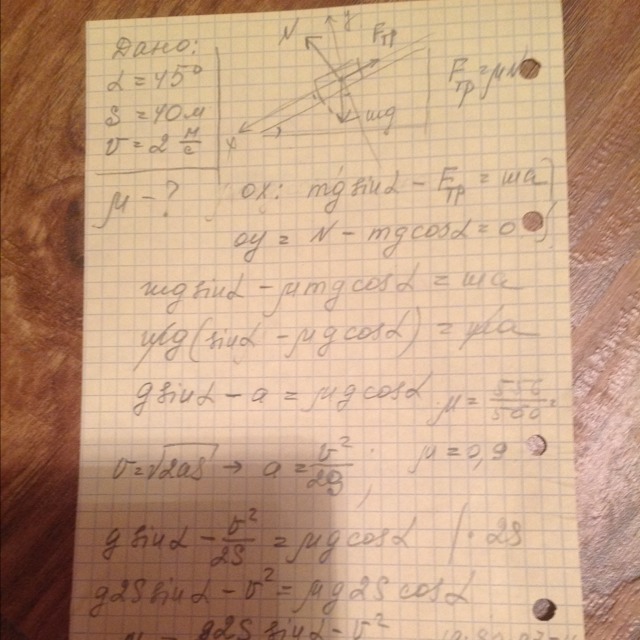 Дано:
α = 45°
S = 40 м
υ = 2 м/с
μ - ?
N y Fтр
mg
x
Fтр = μN
ox: mg sinα - Fтр = ma
oy = N - mg cosα = 0
mg sinα - μmg cosα = ma
mg (sinα - μg cosα) = ma
g sinα - a = μg cosα
μ =
υ = √2aS → a = υ²/2g
μ = 0,9
g sinα - υ²/2S = μg cosα | · 2S
g2S sinα - υ² = μg2S cosα
g2S sinα - υ²